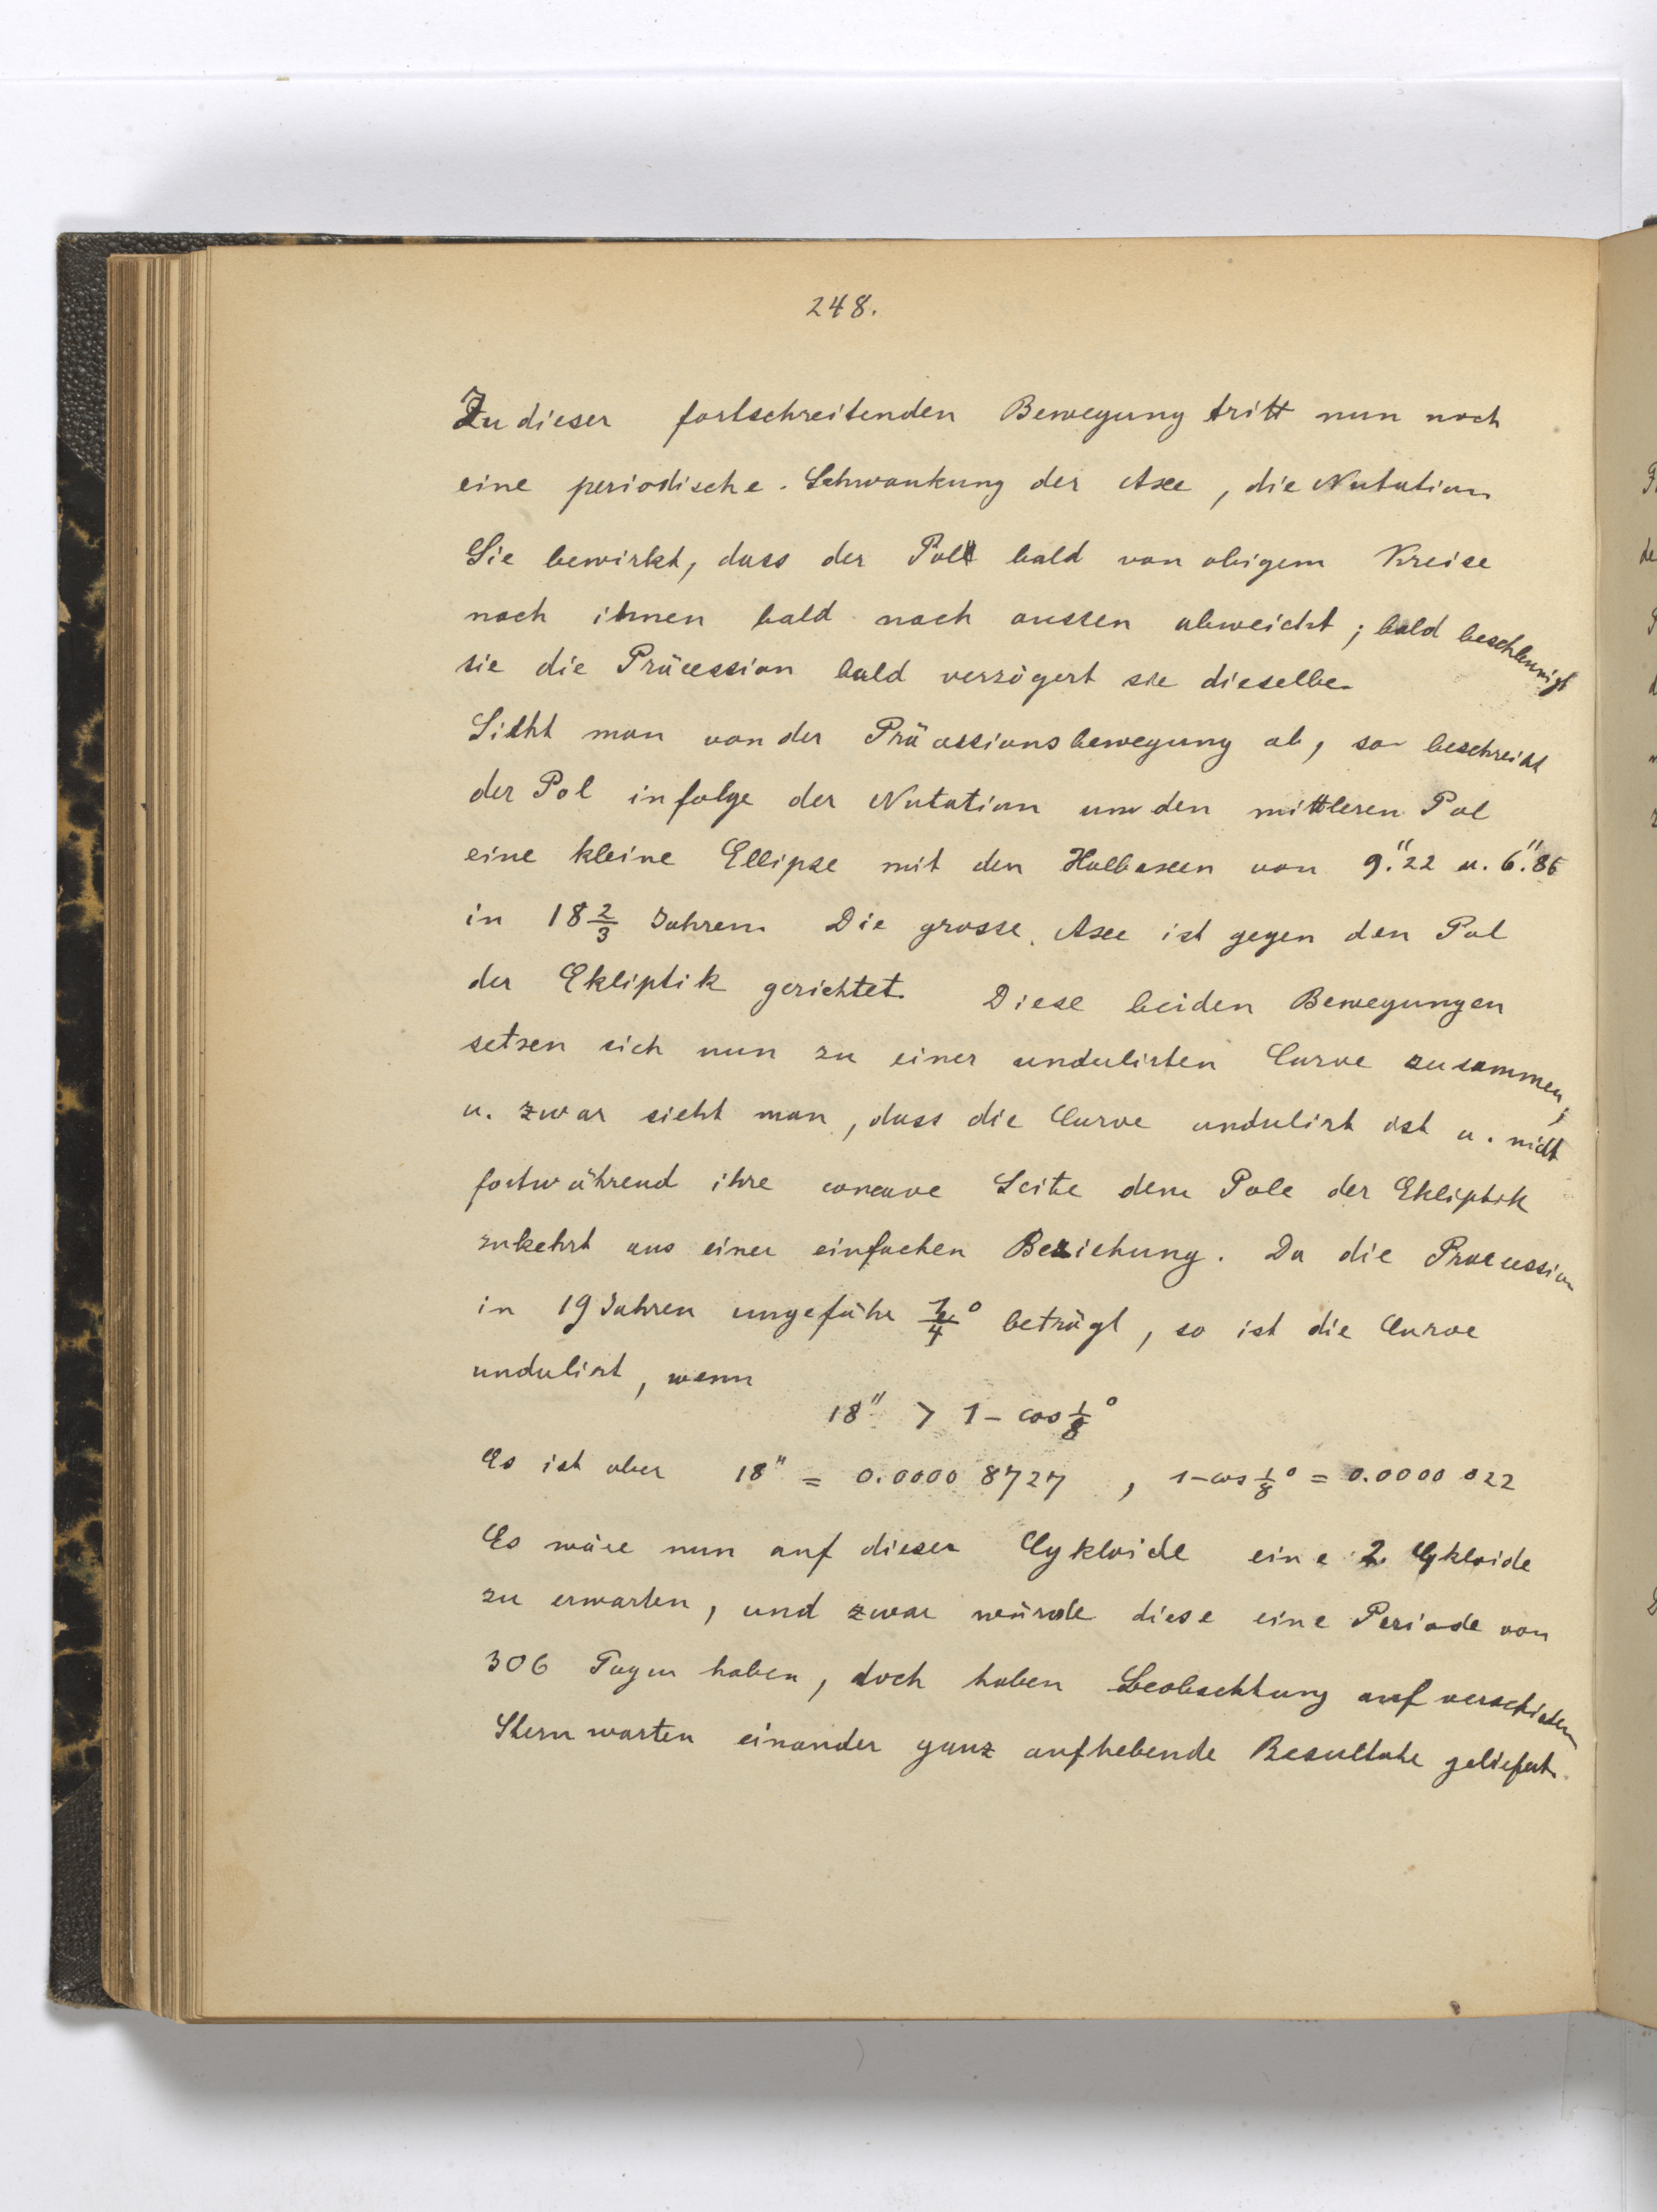 248.
Zu dieser fortschreitenden Bewegung tritt nun noch
eine periodische Schwankung der Axe, die Nutation
Sie bewirkt, dass der Pol bald von obigem Kreise
nach innen bald nach aussen abweicht; bald beschleunigt
sie die Präcession bald verzögert sie dieselbe.
Sieht man von der Präcessionsbewegung ab, so beschreibt
der Pol infolge der Nutation um den mittleren Pol
eine kleine Ellipse mit den Halbaxen von 9."22 u. 6."86
in 18 2/3 Jahren. Die grosse Axe ist gegen den Pol
der Ekliptik gerichtet. Diese beiden Bewegungen
setzen sich nun zu einer undulirten Curve zusammen,
u. zwar sieht man, dass die Curve undulirt ist u. nicht
fortwährend ihre concave Seite dem Pole der Ekliptik
zukehrt aus einer einfachen Beziehung. Da die Präcession
in 19 Jahren ungefähr 1/4° beträgt, so ist die Curve
undulirt, wenn
18" > 1 - cos 1/8°
Es ist aber 18" = 0.0000 8727 , 1-cos 1/8° = 0.0000 022
Es wäre nun auf dieser Cykloide eine 2. Cykloide
zu erwarten, und zwar würde diese eine Periode von
306 Tagen haben, doch haben Beobachtung auf verschieden
Sternwarten einander ganz aufhebende Resultate geliefert.